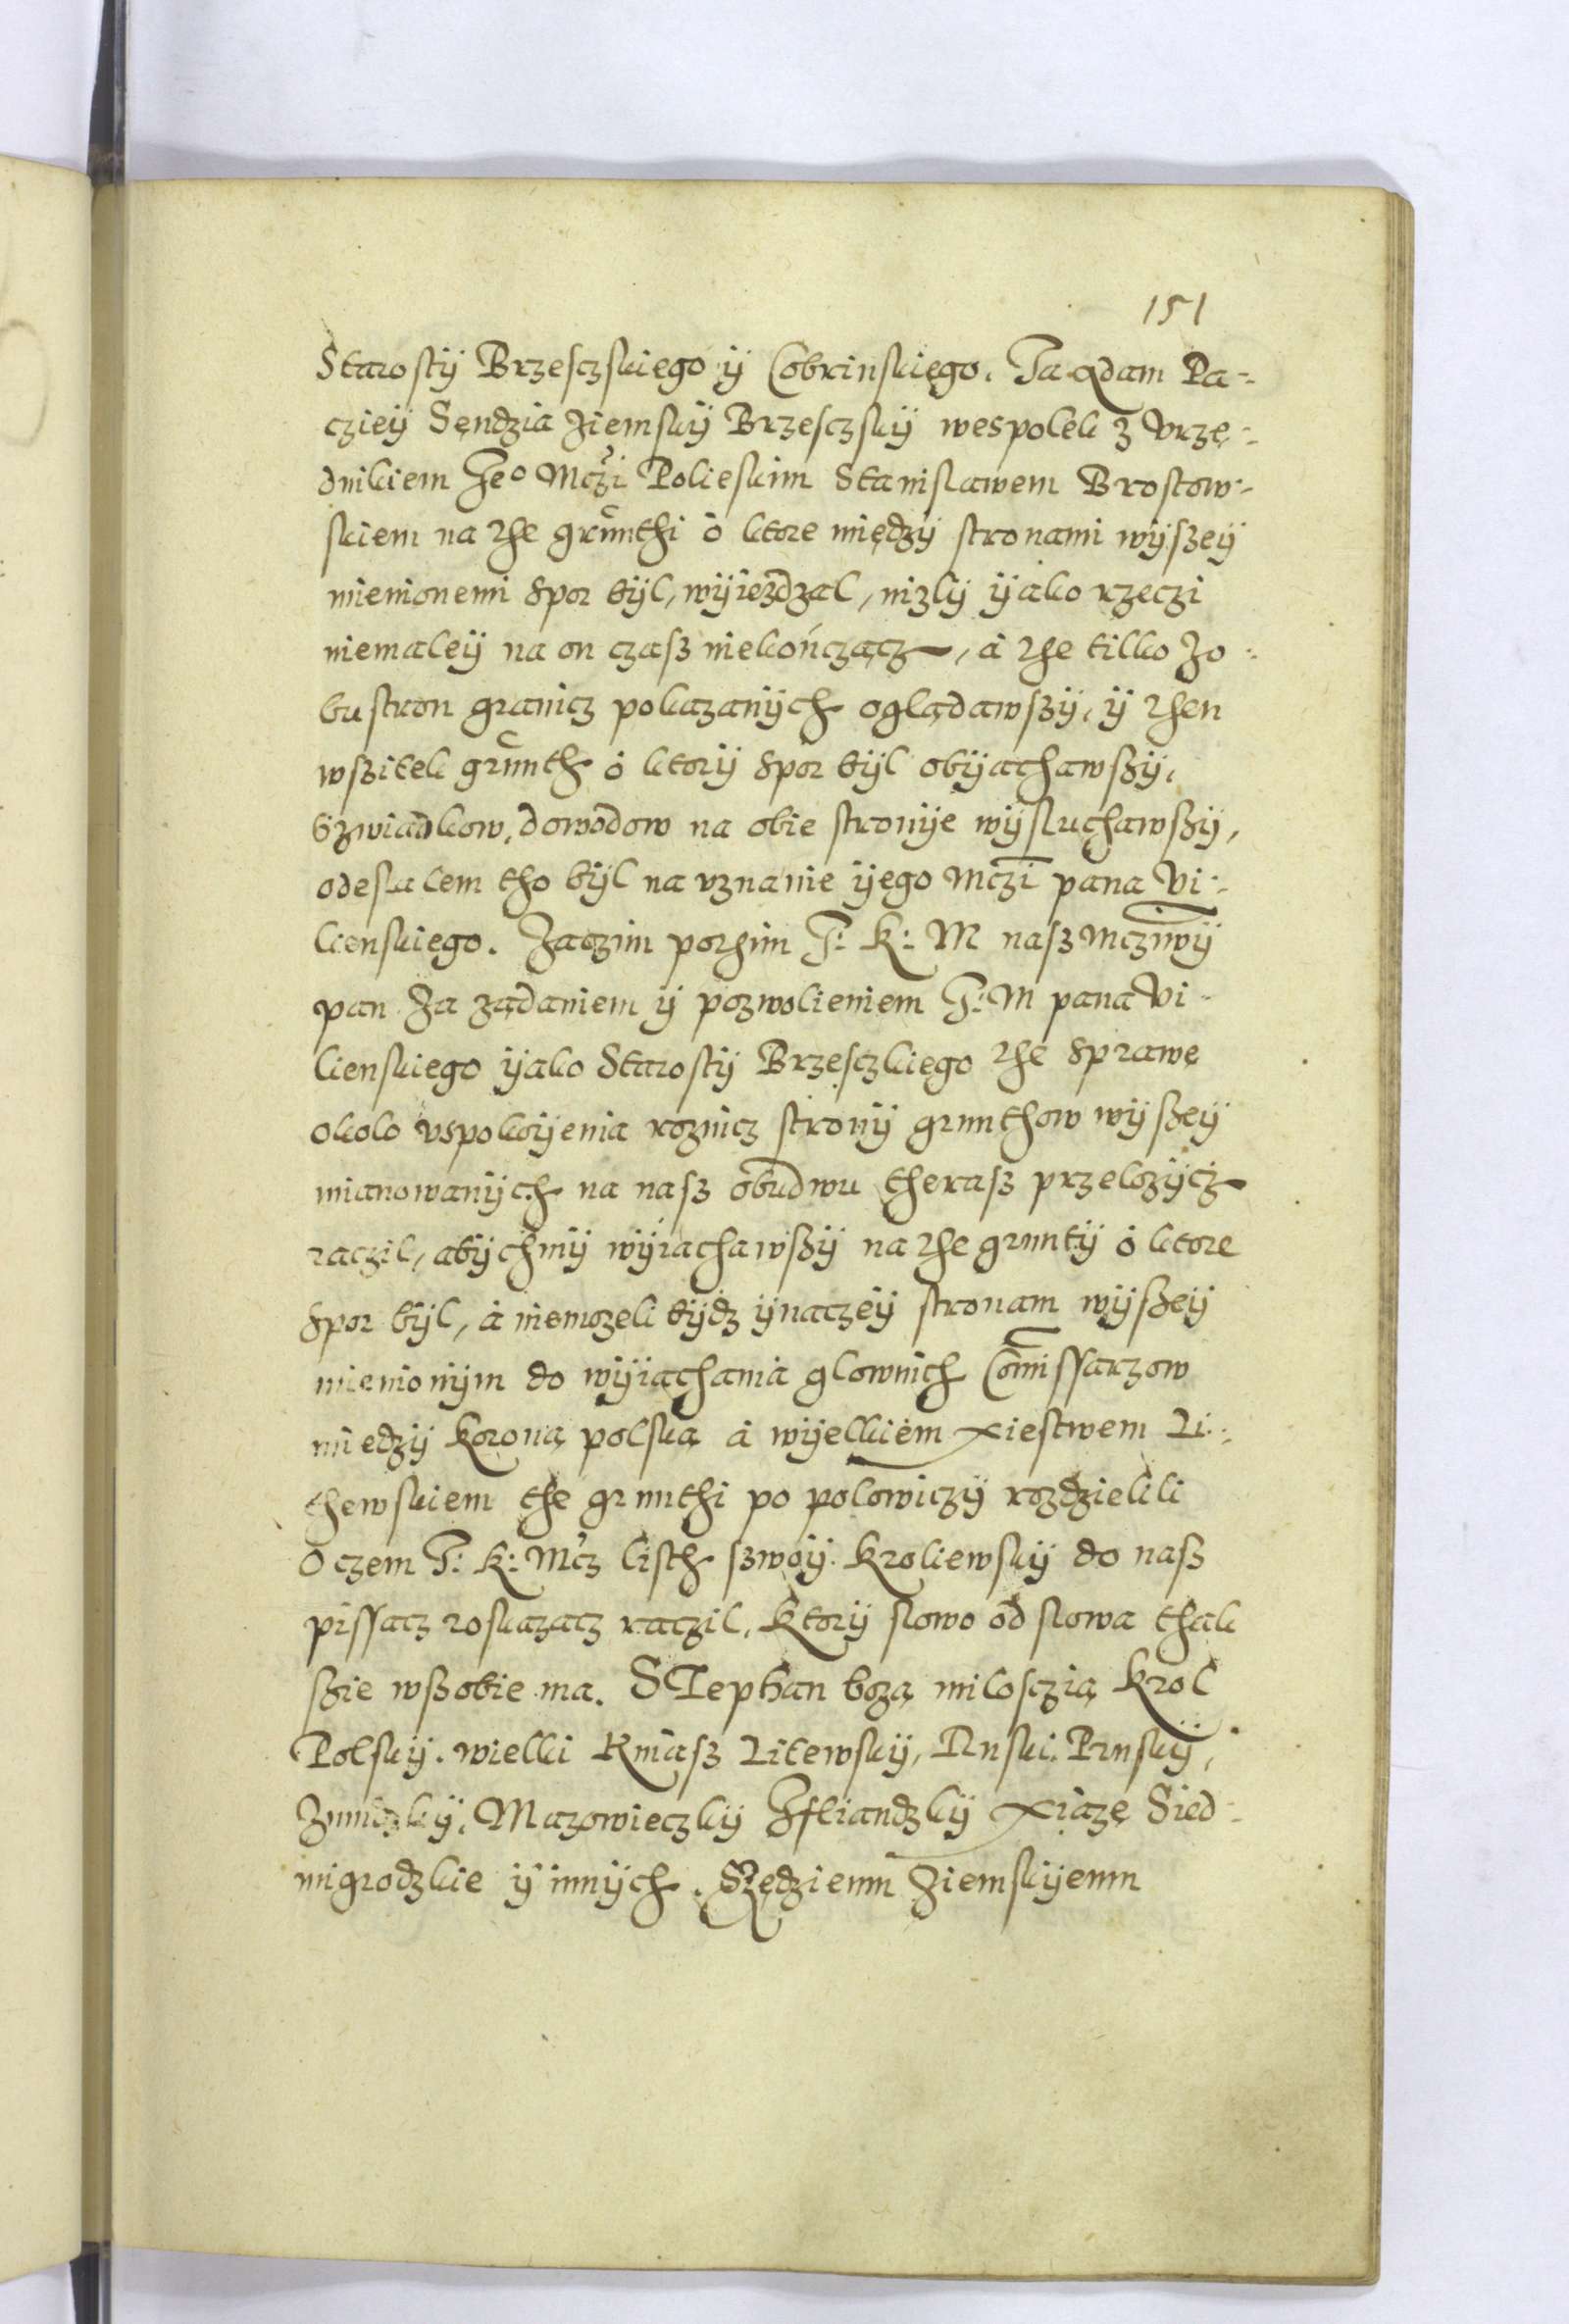 151
Starosty Brzesczskiego ÿ Cobrinskiego. Ja Adam Pa-
czieÿ Sendzia Ziemskÿ Brzesczskÿ wespolek z Vrzę-
dnikiem Jeo Mczi Polieskim Stanislawem Brostow-
skiem na the grunthi o ktore między stronami wÿszeÿ
mienionemi spor bÿl, wÿiezdzal, nizlÿ ÿako rzeczi
niemaleÿ na on czasz niekończącz, á the tilko zo-
bu stron granicz pokazanÿch oglądawszÿ, ÿ then
wszitek grunth o ktorÿ spor bÿl obÿachawszÿ,
Szwiadkow, dowodow na obie stronÿe wÿsluchawszÿ,
odeslalem tho bÿl na uznanie ÿego Mczi pana Vi-
lienskiego. Zaczim pothim J: K: M nasz Mcziwÿ
pan za ządaniem ÿ pozwolieniem J: M pana Vi-
lienskiego ÿako Starostÿ Brzesczkiego the sprawę
około uspokoÿenia roznicz stronÿ grunthow wÿszeÿ
mianowanÿch na nasz obudwu therasz przelozÿcz
raczil, abÿchmÿ wÿiachawszÿ na the gruntÿ o ktore
spor bÿl, á niemozeli bÿdz ÿnaczeÿ stronam wÿszeÿ
mienionÿm do wÿiachania glownich Comissarzow
miedzÿ Koroną polską á wÿelkiem xiestwem Li-
thewskiem the grunthi po polowiczÿ rozdzielili
O czem J: K: Mcz listh szwoÿ Kroliewskÿ do nasz
pissacz roskazacz raczil, Ktorÿ slowo od slowa thak
szie wszobie ma. Stephan bożą milosczią Krol
Polskÿ. wielki Kniasz Litewskÿ, Ruski. Pruskÿ,
Zmudzkÿ, Mazowieczkÿ Jfliandzkÿ xiąze Sied-
migrodzkie ÿ innÿch. Sędziemu Ziemskÿemu